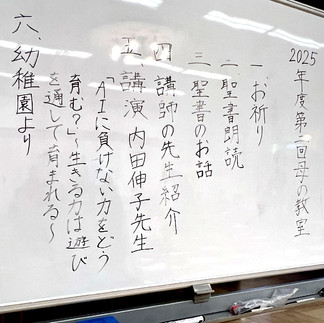 2025年度第一回母の教室
一 お祈り
二 聖書朗読
三 聖書のお話
四 講師の先生紹介
五、講演 内田伸子先生
「AIに負けない力をどう
育む?」～生きる力は遊び
を通して育まれる～
六、幼稚園より